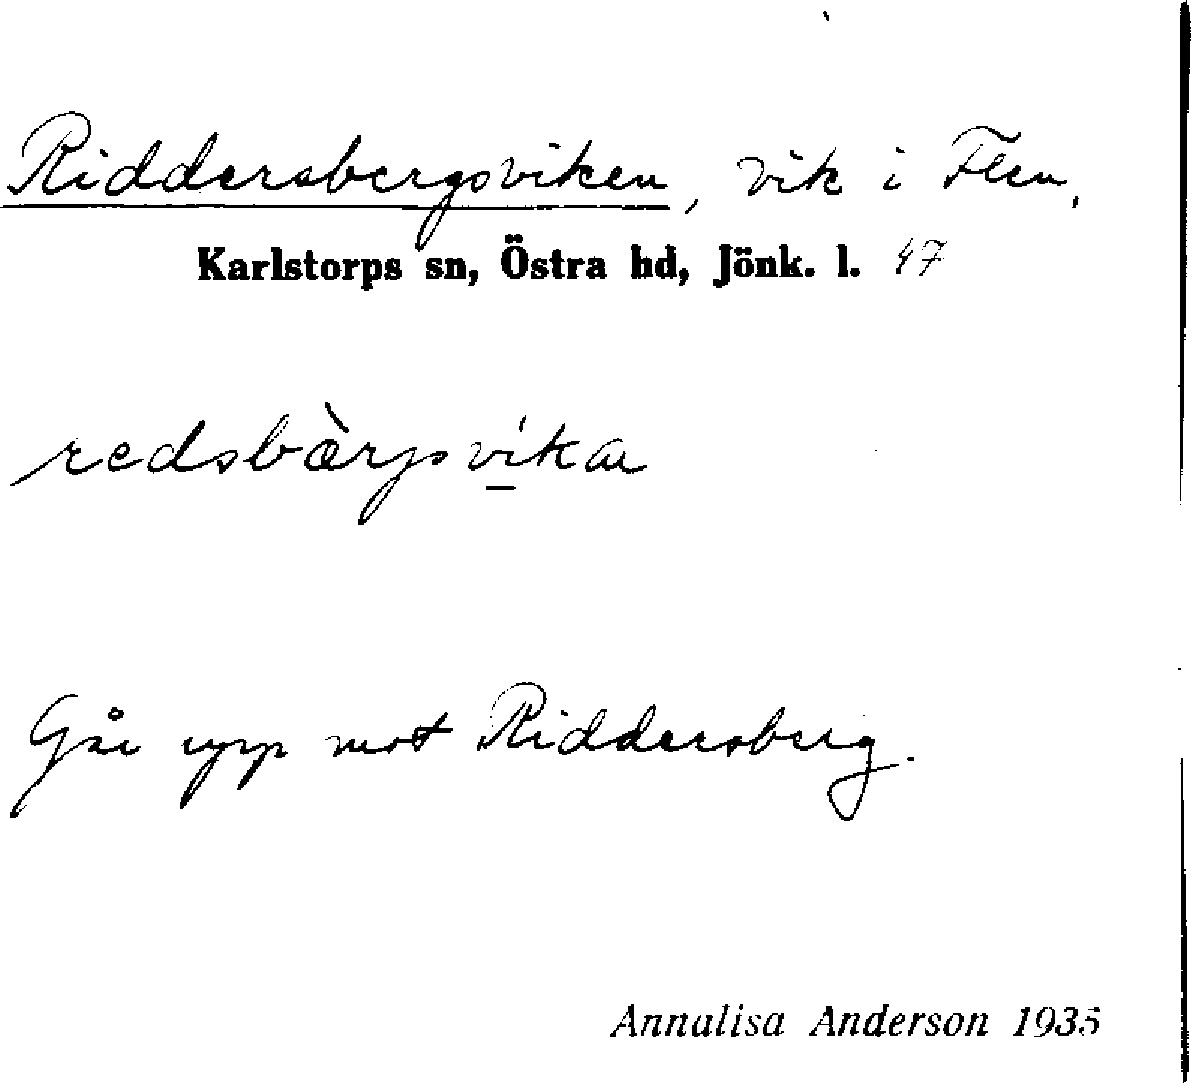 Riddersbergsviken, vik i Flen,
Karlstorps sn, Östra hd, Jönk. l. 47
redsbærjsvikan
Går upp mot Riddersberg.
Annalisa Anderson 1935